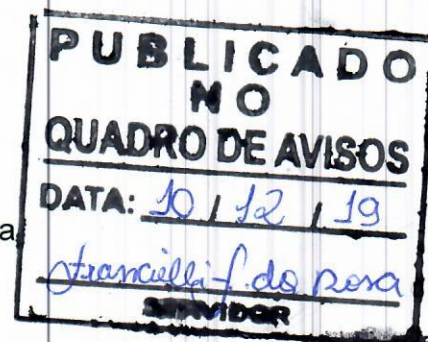 PUBLICADO
NO
QUADRO DE AVISOS
DATA: 10 / 12 / 19
a
Francielli f. da Rosa
SERVIDOR